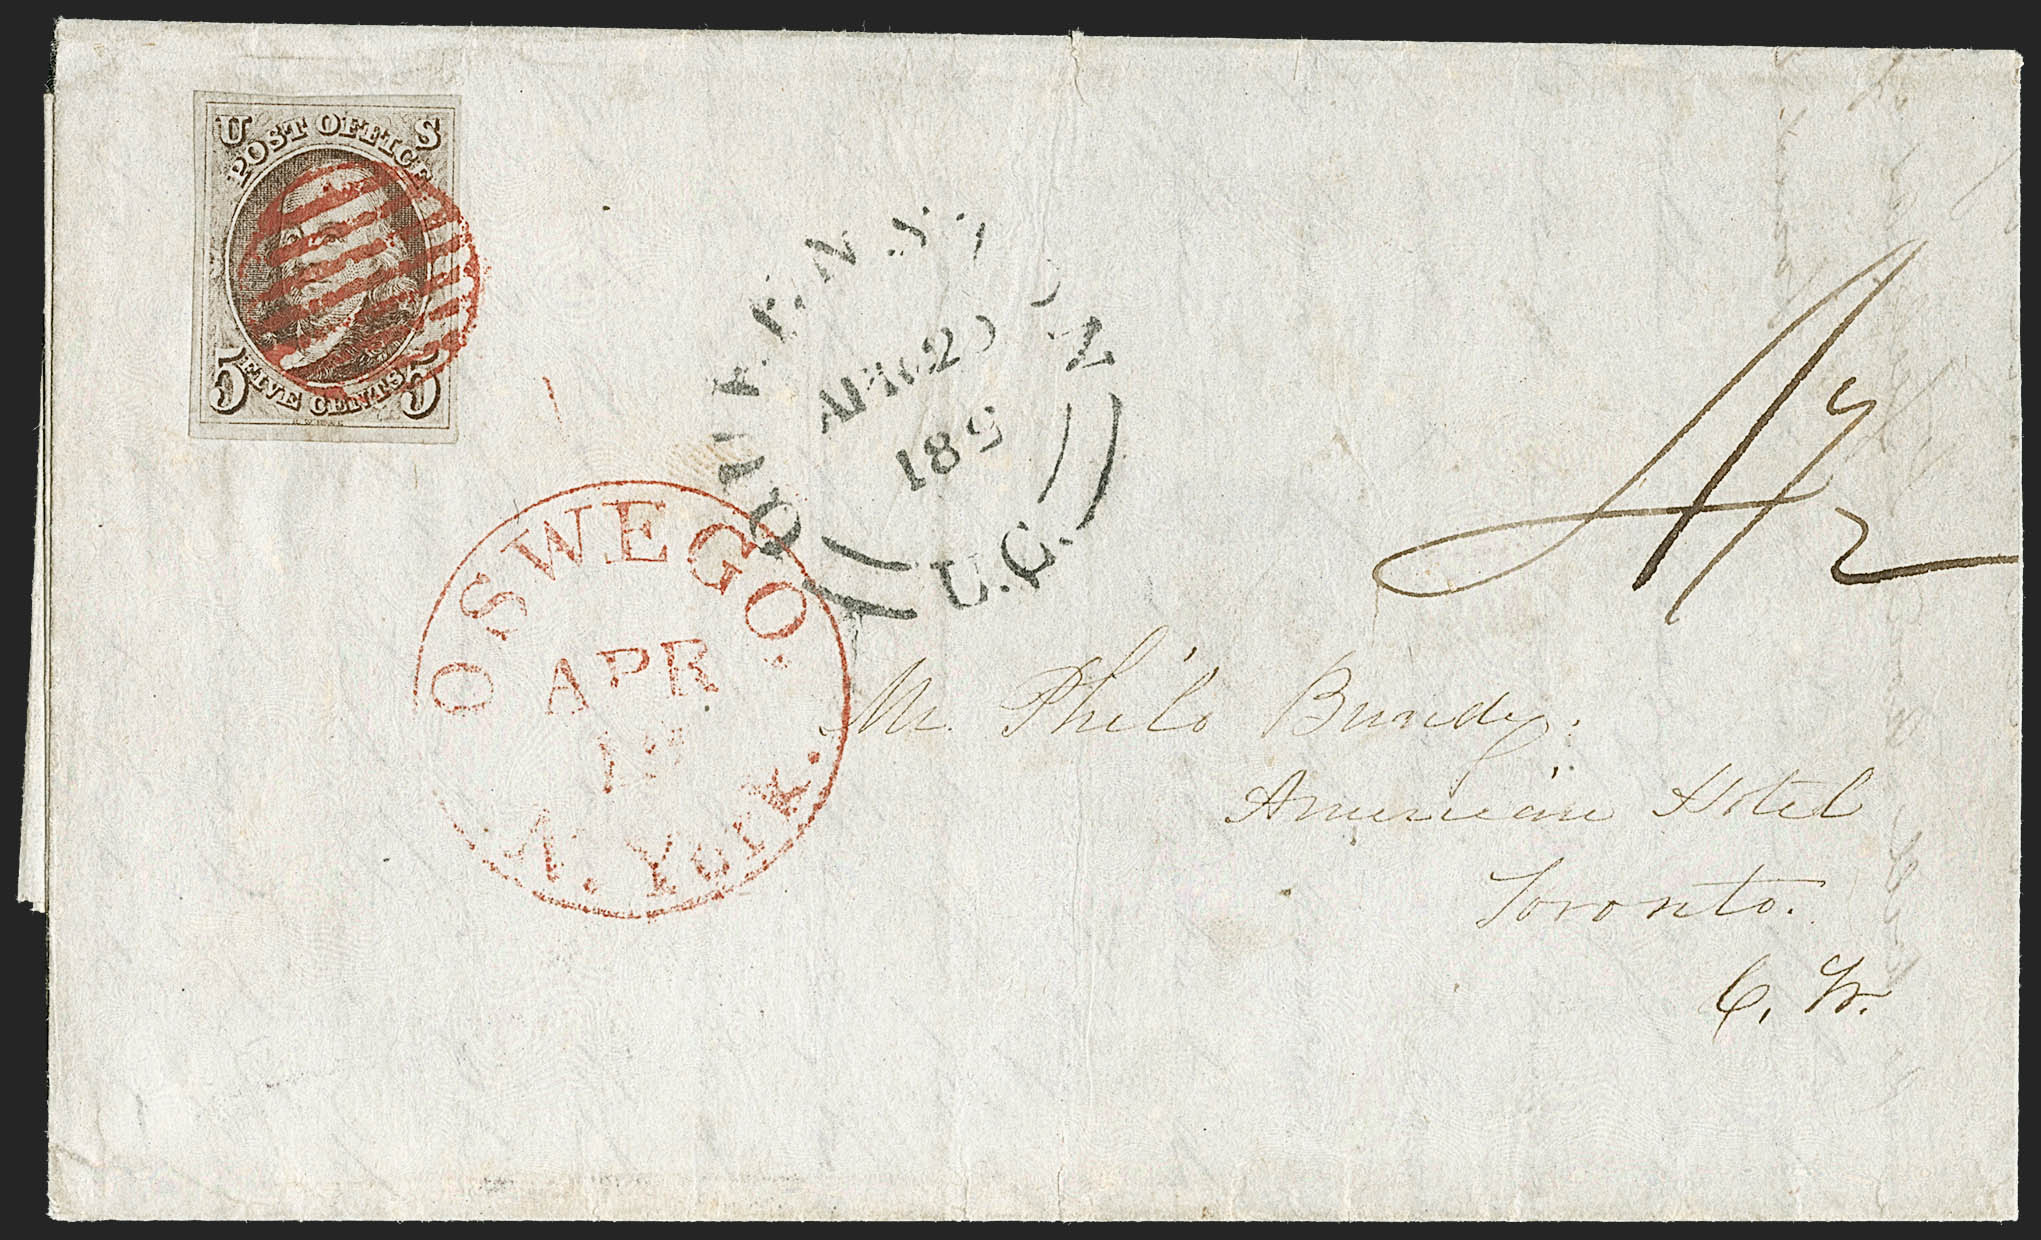 U S
POST OFFICE
5 FIVE CENTS 5
QUEENSTON
APR 20
185
U.C.
OSWEGO.
APR
N. York.
4½
Mr. Philo Bundy.
American Hotel
Toronto.
C. W.